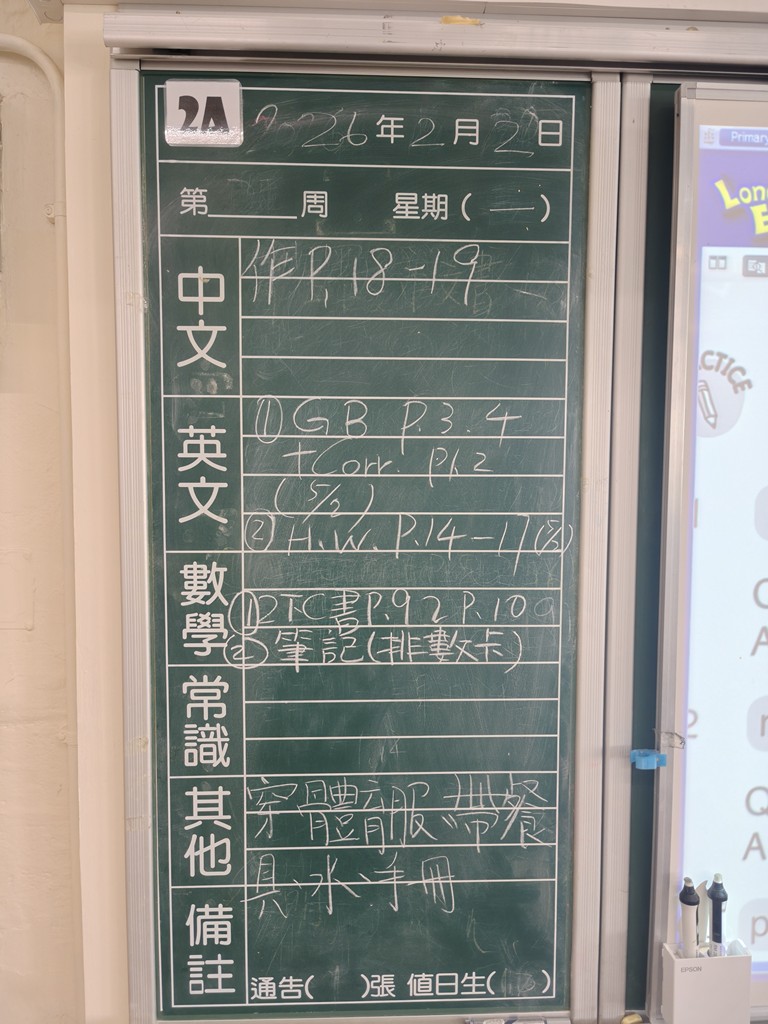 2A
26年2月2日
第____周 星期(一)
中文
作P.18-19
英文
①GB P.3.4
+Corr. P1.2
(5/2)
②H.W. P.14-17
數學
①2下C書P.9 2 P.10
②筆記(排數卡)
常識
其他
穿體育服、帶餐
具、水、手冊
備註
通告( )張 值日生( )
Primary
CTICE
EPSON